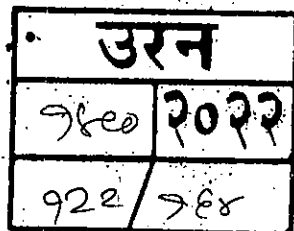 उरन
१४९० २०२२
१२२ / १६४